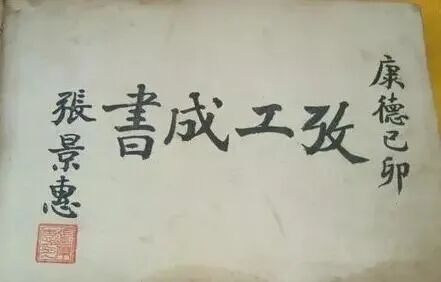 康德己卯
攷工成書
張景惠